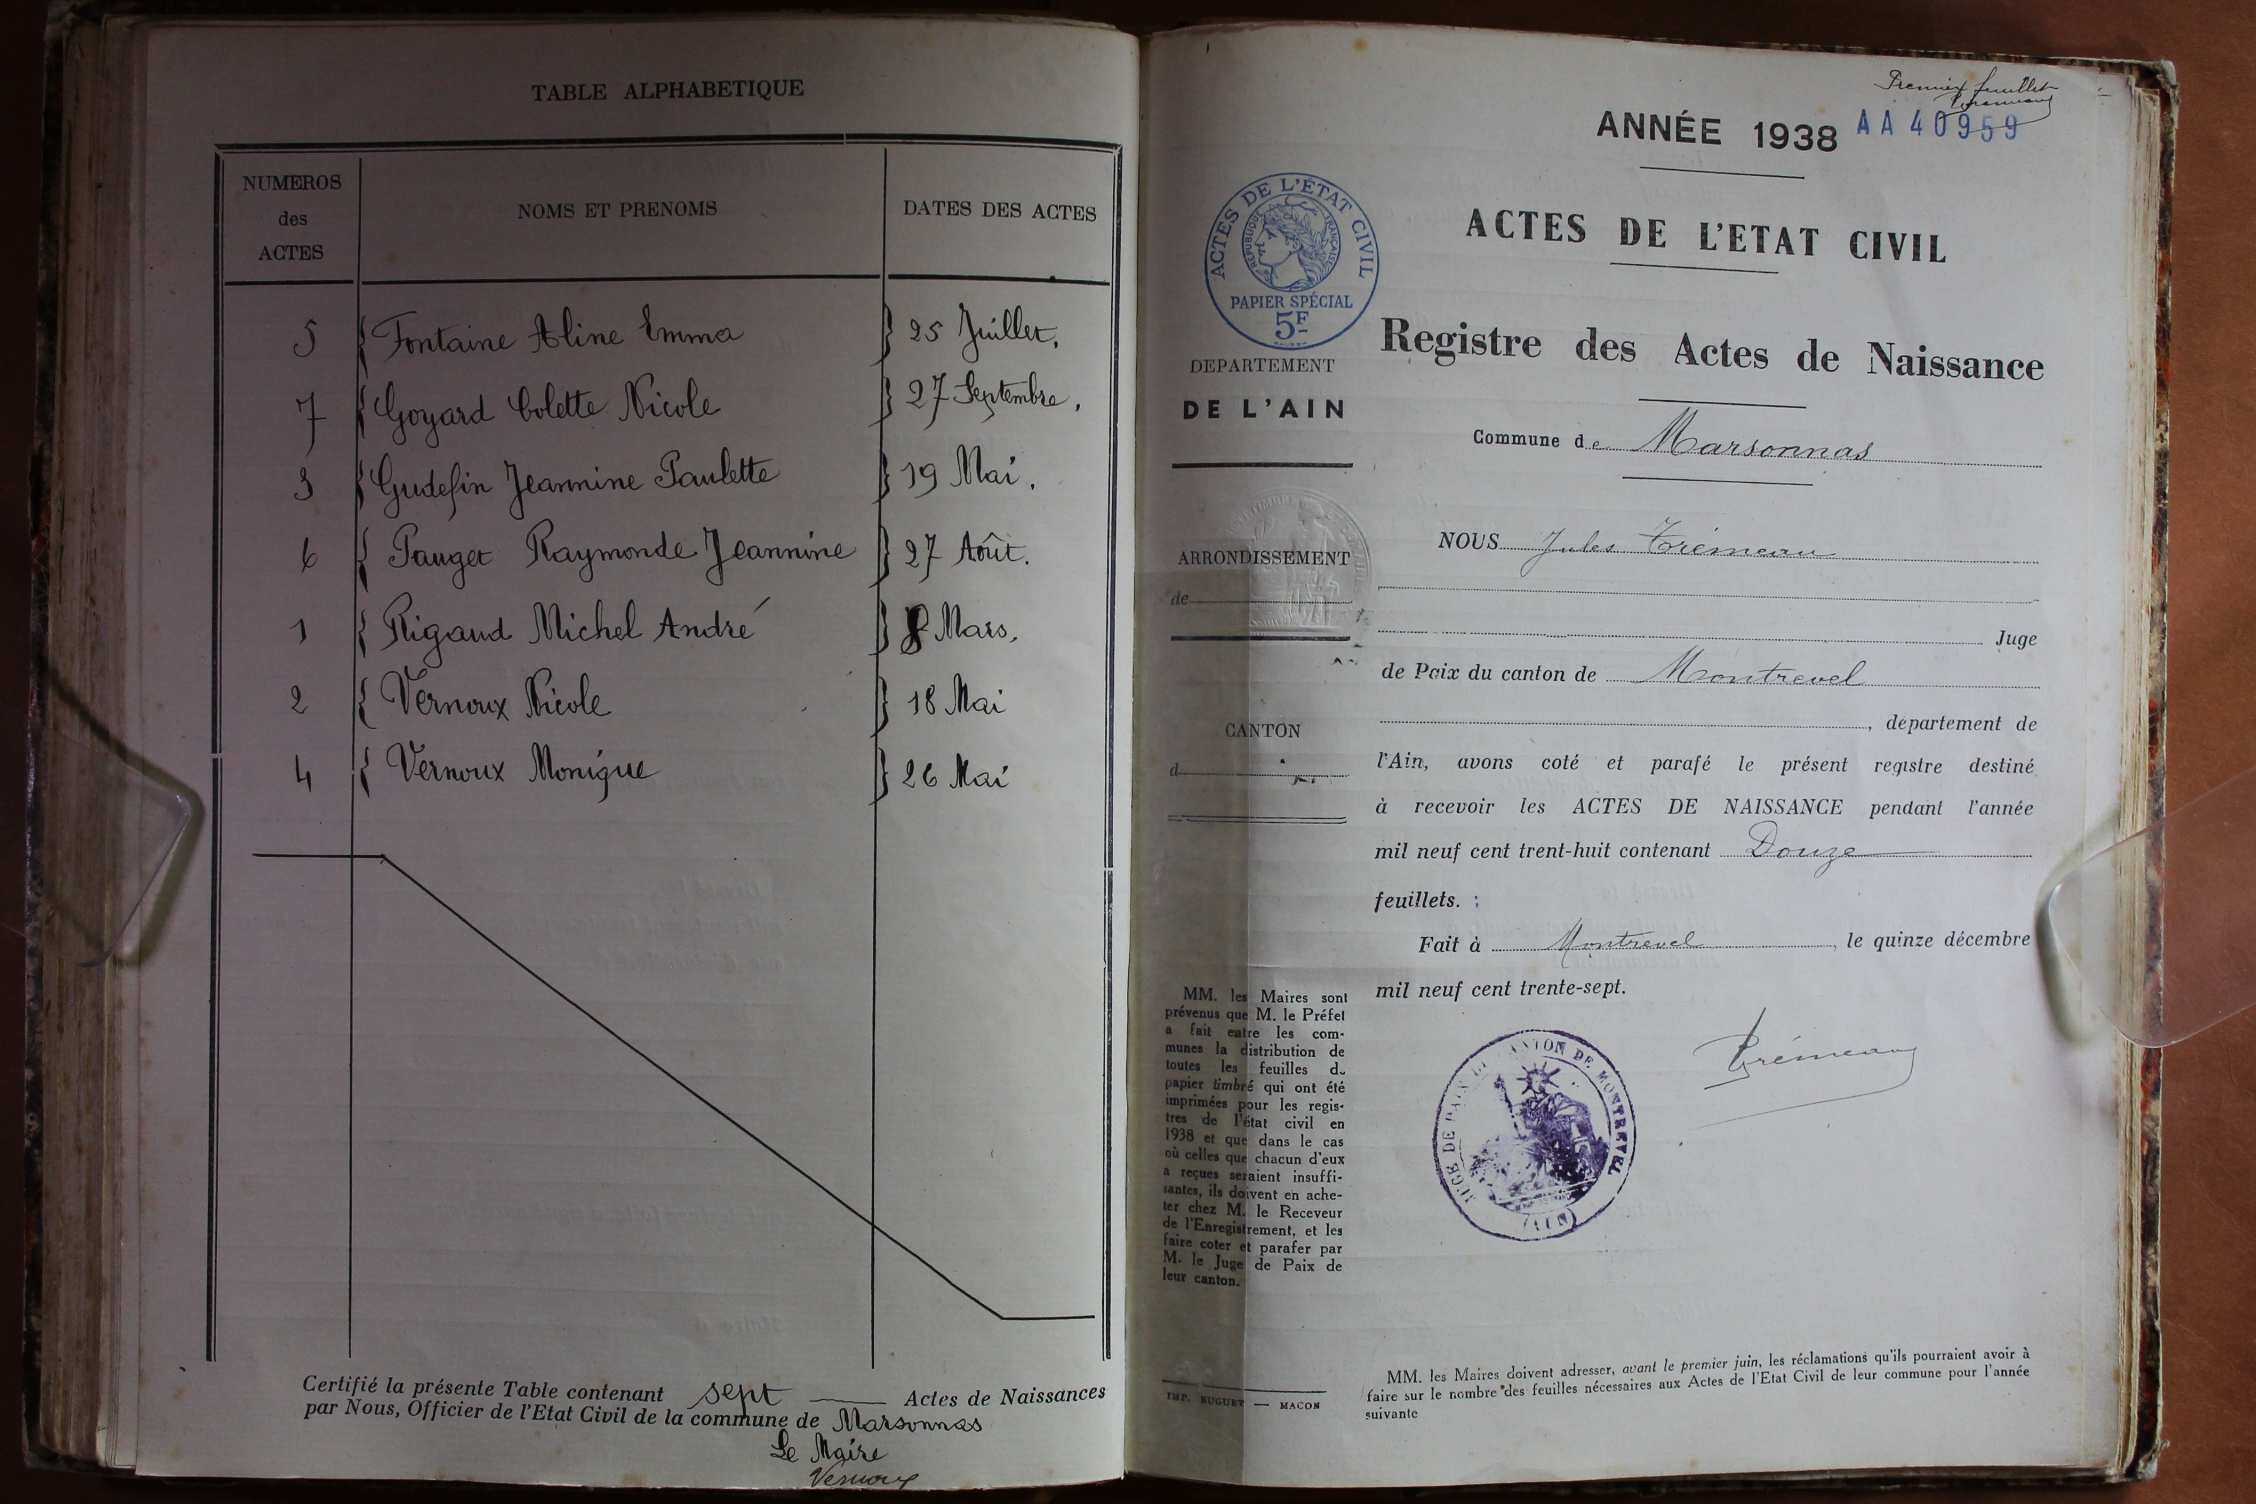 TABLE ALPHABETIQUE
NUMEROS
des
ACTES
NOMS ET PRENOMS
DATES DES ACTES
5 { Fontaine Aline Emma } 25 Juillet.
7 { Goyard Colette Nicole } 27 Septembre.
3 { Gudefin Jeannine Paulette } 19 Mai.
6 { Pauget Raymonde Jeannine } 27 Août.
1 { Rigaud Michel André } 8 Mars.
2 { Vernoux Nicole } 18 Mai
4 { Vernoux Monique } 26 Mai
Certifié la présente Table contenant sept Actes de Naissances
par Nous, Officier de l'Etat Civil de la commune de Marsonnas
Le Maire
Vernoux
Premier feuillet
Trémeau
ANNÉE 1938 AA 40959
ACTES DE L'ÉTAT CIVIL
RÉPUBLIQUE FRANÇAISE
PAPIER SPÉCIAL
5F
ACTES DE L'ETAT CIVIL
Registre des Actes de Naissance
Commune de Marsonnas
DEPARTEMENT
DE L'AIN
ARRONDISSEMENT
de
CANTON
d
NOUS Jules Trémeau
Juge
de Paix du canton de Montrevel
, département de
l'Ain, avons coté et parafé le présent registre destiné
à recevoir les ACTES DE NAISSANCE pendant l'année
mil neuf cent trent-huit contenant Douze
feuillets. :
Fait à Montrevel, le quinze décembre
mil neuf cent trente-sept.
Trémeau
JUGE DE PAIX DU CANTON DE MONTREVEL
(AIN)
MM. les Maires sont
prévenus que M. le Préfet
a fait entre les com-
munes la distribution de
toutes les feuilles du
papier timbré qui ont été
imprimées pour les regis-
tres de l'état civil en
1938 et que dans le cas
où celles que chacun d'eux
a reçues seraient insuffi-
santes, ils doivent en ache-
ter chez M. le Receveur
de l'Enregistrement, et les
faire coter et parafer par
M. le Juge de Paix de
leur canton.
IMP. BUGUET — MACON
MM. les Maires doivent adresser, avant le premier juin, les réclamations qu'ils pourraient avoir à
faire sur le nombre des feuilles nécessaires aux Actes de l'Etat Civil de leur commune pour l'année
suivante